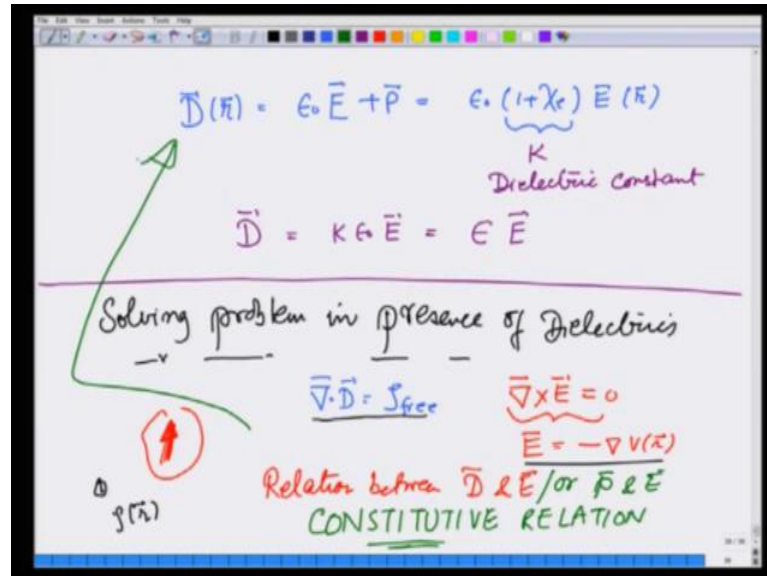 File Edit View Insert Actions Tools Help
D⃗(r⃗) = ϵ₀ E⃗ + P⃗ = ϵ₀ (1+χₑ) E⃗ (r⃗)
K
Dielectric constant
D⃗ = K ϵ₀ E⃗ = ϵ E⃗
Solving problem in presence of Dielectrics
∇⃗·D⃗ = ρfree ∇⃗×E⃗ = 0
E⃗ = −∇ V(r⃗)
Relation between D⃗ & E⃗ / or P⃗ & E⃗
ρ(r⃗) CONSTITUTIVE RELATION